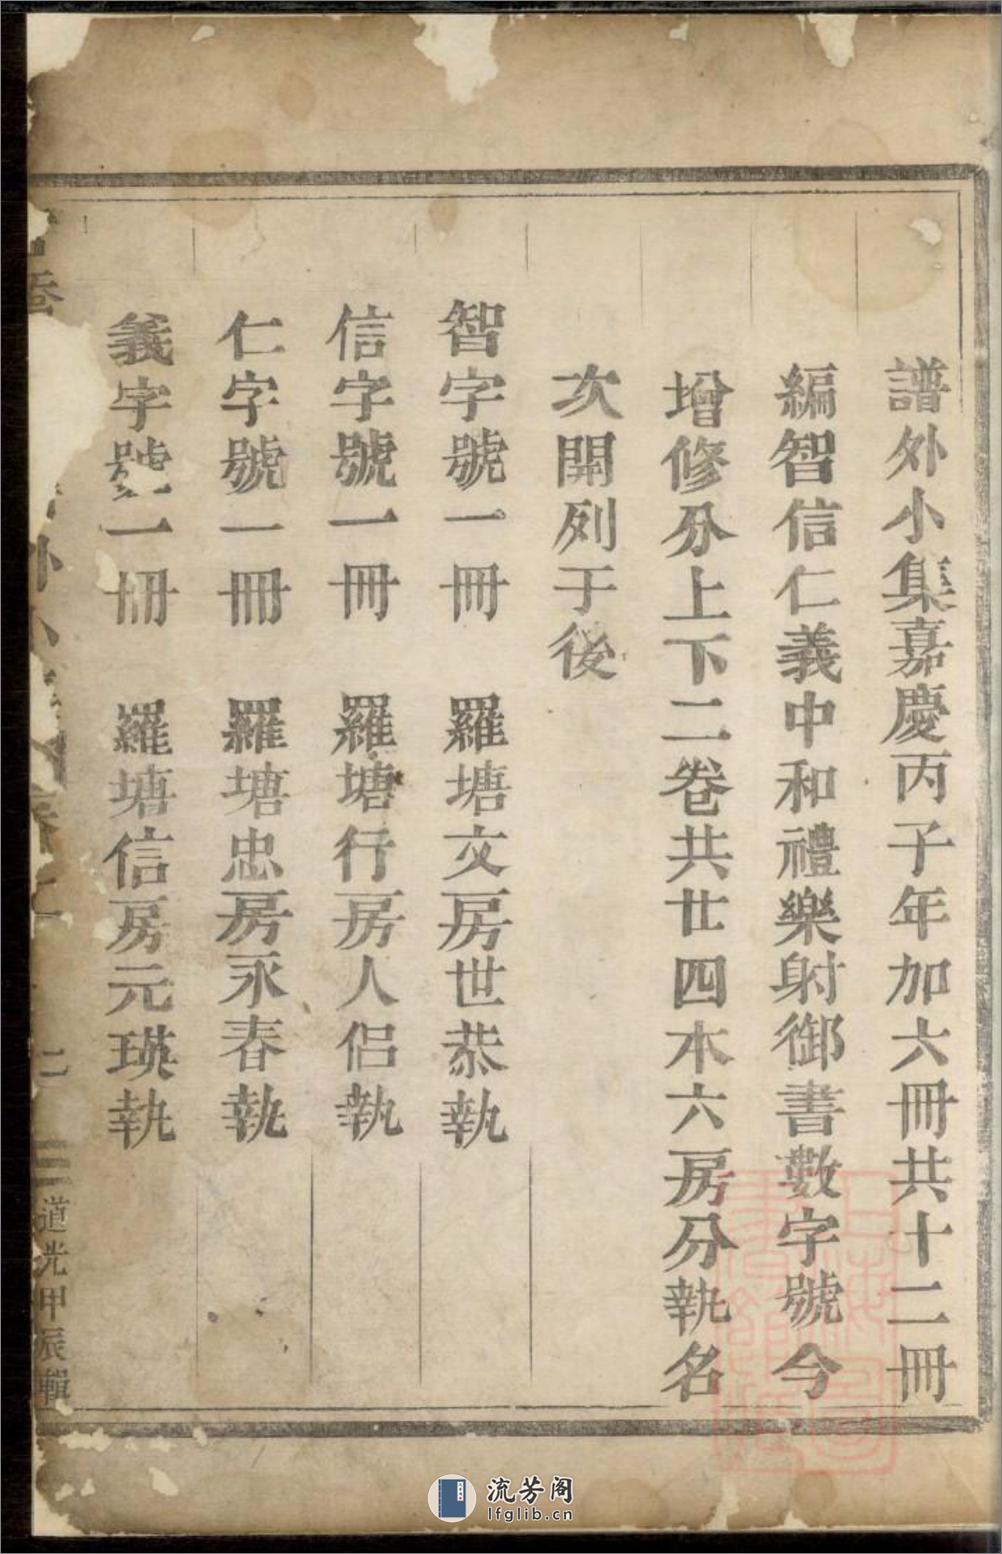 譜外小集嘉慶丙子年加六冊共十二冊
編智信仁義中和禮樂射御書數字號今
增修分上下二卷共廿四本六房分執名
次開列于後
智字號一冊　羅塘文房世恭執
信字號一冊　羅塘行房人侣執
仁字號一冊　羅塘忠房永春執
義字號一冊　羅塘信房元瑛執
道光甲辰輯
流芳阁
lfglib.cn